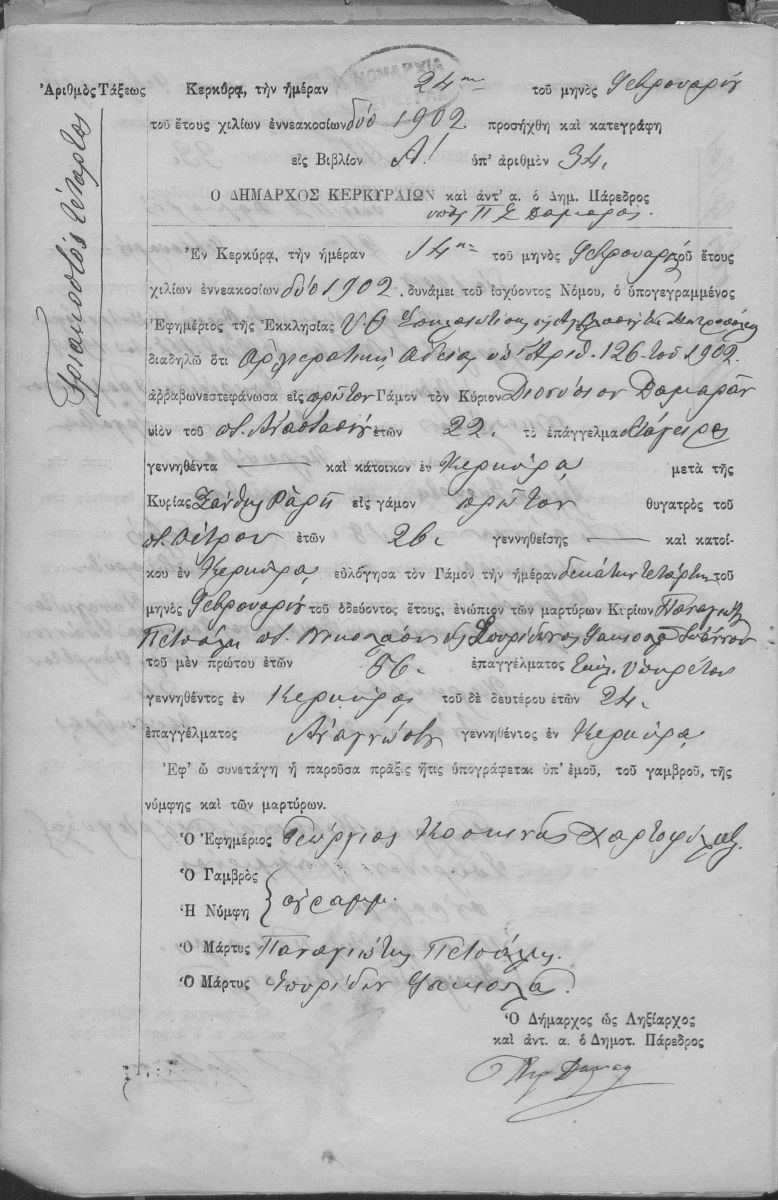 ΝΟΜΑΡΧΙΑ
Ἀριθμὸς Τάξεως
Τριακοστὸς τέταρτος
Κερκύρᾳ, τὴν ἡμέραν 24ην τοῦ μηνὸς Φεβρουαρίου
τοῦ ἔτους χιλίων ἐννεακοσίων δύο 1902 προσήχθη καὶ κατεγράφη
εἰς Βιβλίον Α! ὑπ' ἀριθμὸν 34.
Ο ΔΗΜΑΡΧΟΣ ΚΕΡΚΥΡΑΙΩΝ καὶ ἀντ' α. ὁ Δημ. Πάρεδρος
Π Σ
Ἐν Κερκύρᾳ, τὴν ἡμέραν 14ην τοῦ μηνὸς Φεβρουαρίου τοῦ ἔτους
χιλίων ἐννεακοσίων δύο 1902. δυνάμει τοῦ ἰσχύοντος Νόμου, ὁ ὑπογεγραμμένος
Ἐφημέριος τῆς Ἐκκλησίας Υ Θ Μητροπόλεως
διαδηλῶ ὅτι Ἀρχιερατικῇ ἀδείᾳ ὑπ' Ἀριθ. 126 τοῦ 1902.
ἀρραβωνεστεφάνωσα εἰς πρῶτον Γάμον τὸν Κύριον Διονύσιον Δαμαρᾶν
υἱὸν τοῦ π. Ἀναστασίου ἐτῶν 22. τὸ ἐπάγγελμα Μάγειρα
γεννηθέντα — καὶ κάτοικον ἐν Κερκύρᾳ μετὰ τῆς
Κυρίας Ξάνθης εἰς γάμον πρῶτον θυγατρὸς τοῦ
π. Πέτρου ἐτῶν 26. γεννηθείσης — καὶ κατοί-
κου ἐν Κερκύρᾳ, εὐλόγησα τὸν Γάμον τὴν ἡμέραν δεκάτην τετάρτην τοῦ
μηνὸς Φεβρουαρίου τοῦ ὁδεύοντος ἔτους, ἐνώπιον τῶν μαρτύρων Κυρίων Παναγιώτη
Πετσάλη π. Νικολάου καὶ Σπυρίδωνος Ἰωάννου
τοῦ μὲν πρώτου ἐτῶν 56. ἐπαγγέλματος Ἐκκλ. Υπηρέτου
γεννηθέντος ἐν Κερκύρᾳ τοῦ δὲ δευτέρου ἐτῶν 24.
ἐπαγγέλματος Ἀναγνώστου γεννηθέντος ἐν Κερκύρᾳ
Ἐφ' ᾧ συνετάγη ἡ παροῦσα πρᾶξις ἥτις ὑπογράφεται ὑπ' ἐμοῦ, τοῦ γαμβροῦ, τῆς
νύμφης καὶ τῶν μαρτύρων.
Ὁ Ἐφημέριος Γεώργιος Κοσκινᾶς Χαρτοφύλαξ.
Ὁ Γαμβρὸς
ἀγράμμ.
Ἡ Νύμφη
Ὁ Μάρτυς Παναγιώτης Πετσάλης.
Ὁ Μάρτυς Σπυρίδων
Ὁ Δήμαρχος ὡς Ληξίαρχος
καὶ ἀντ. α. ὁ Δημοτ. Πάρεδρος